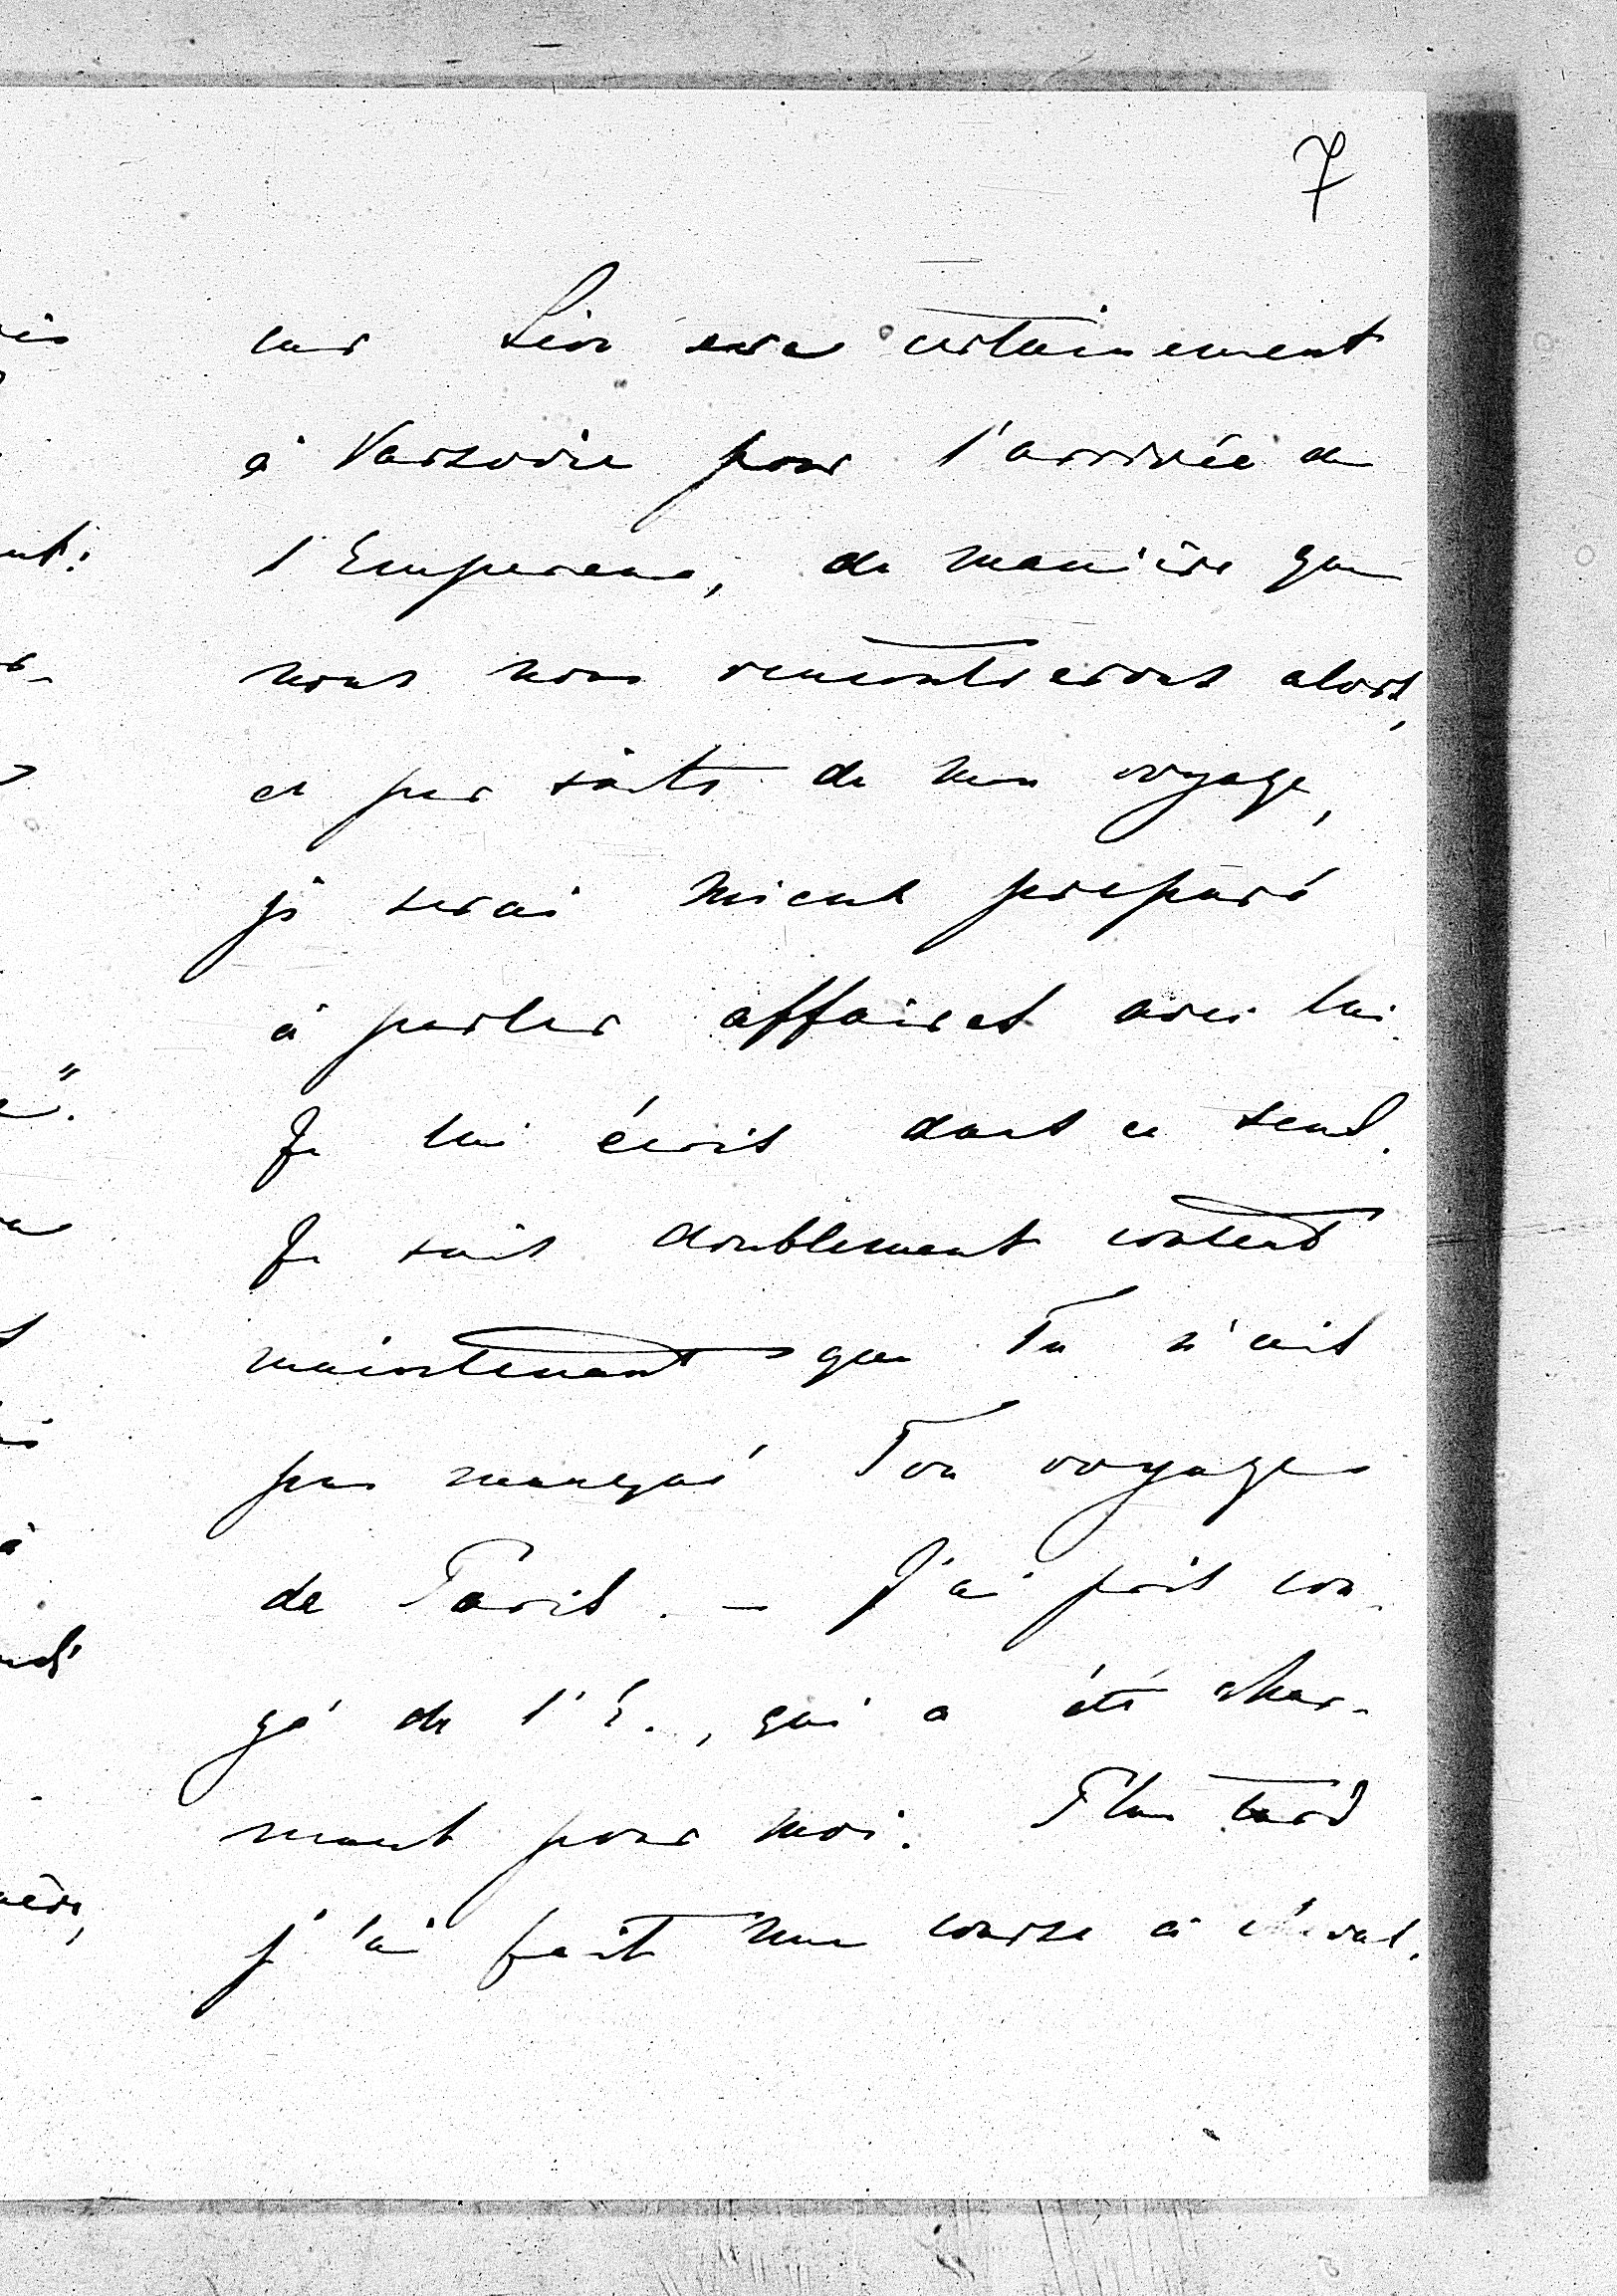 7
car Léon sera certainement
à Varsovie pour l'arrivée de
l'Empereur, de manière que
nous nous rencontrerons alors,
et par suite de mon voyage,
je serai mieux preparé
à parler affaires avec lui.
Je lui écris dans ce sens.
Je suis doublement content
maintenant que Tu n'ais
pas manqué Ton voyage
de Paris. – J'ai pris con-
gé de l'E., qui a été char-
mant pour moi. Plus tard
j'ai fait une course à cheval.